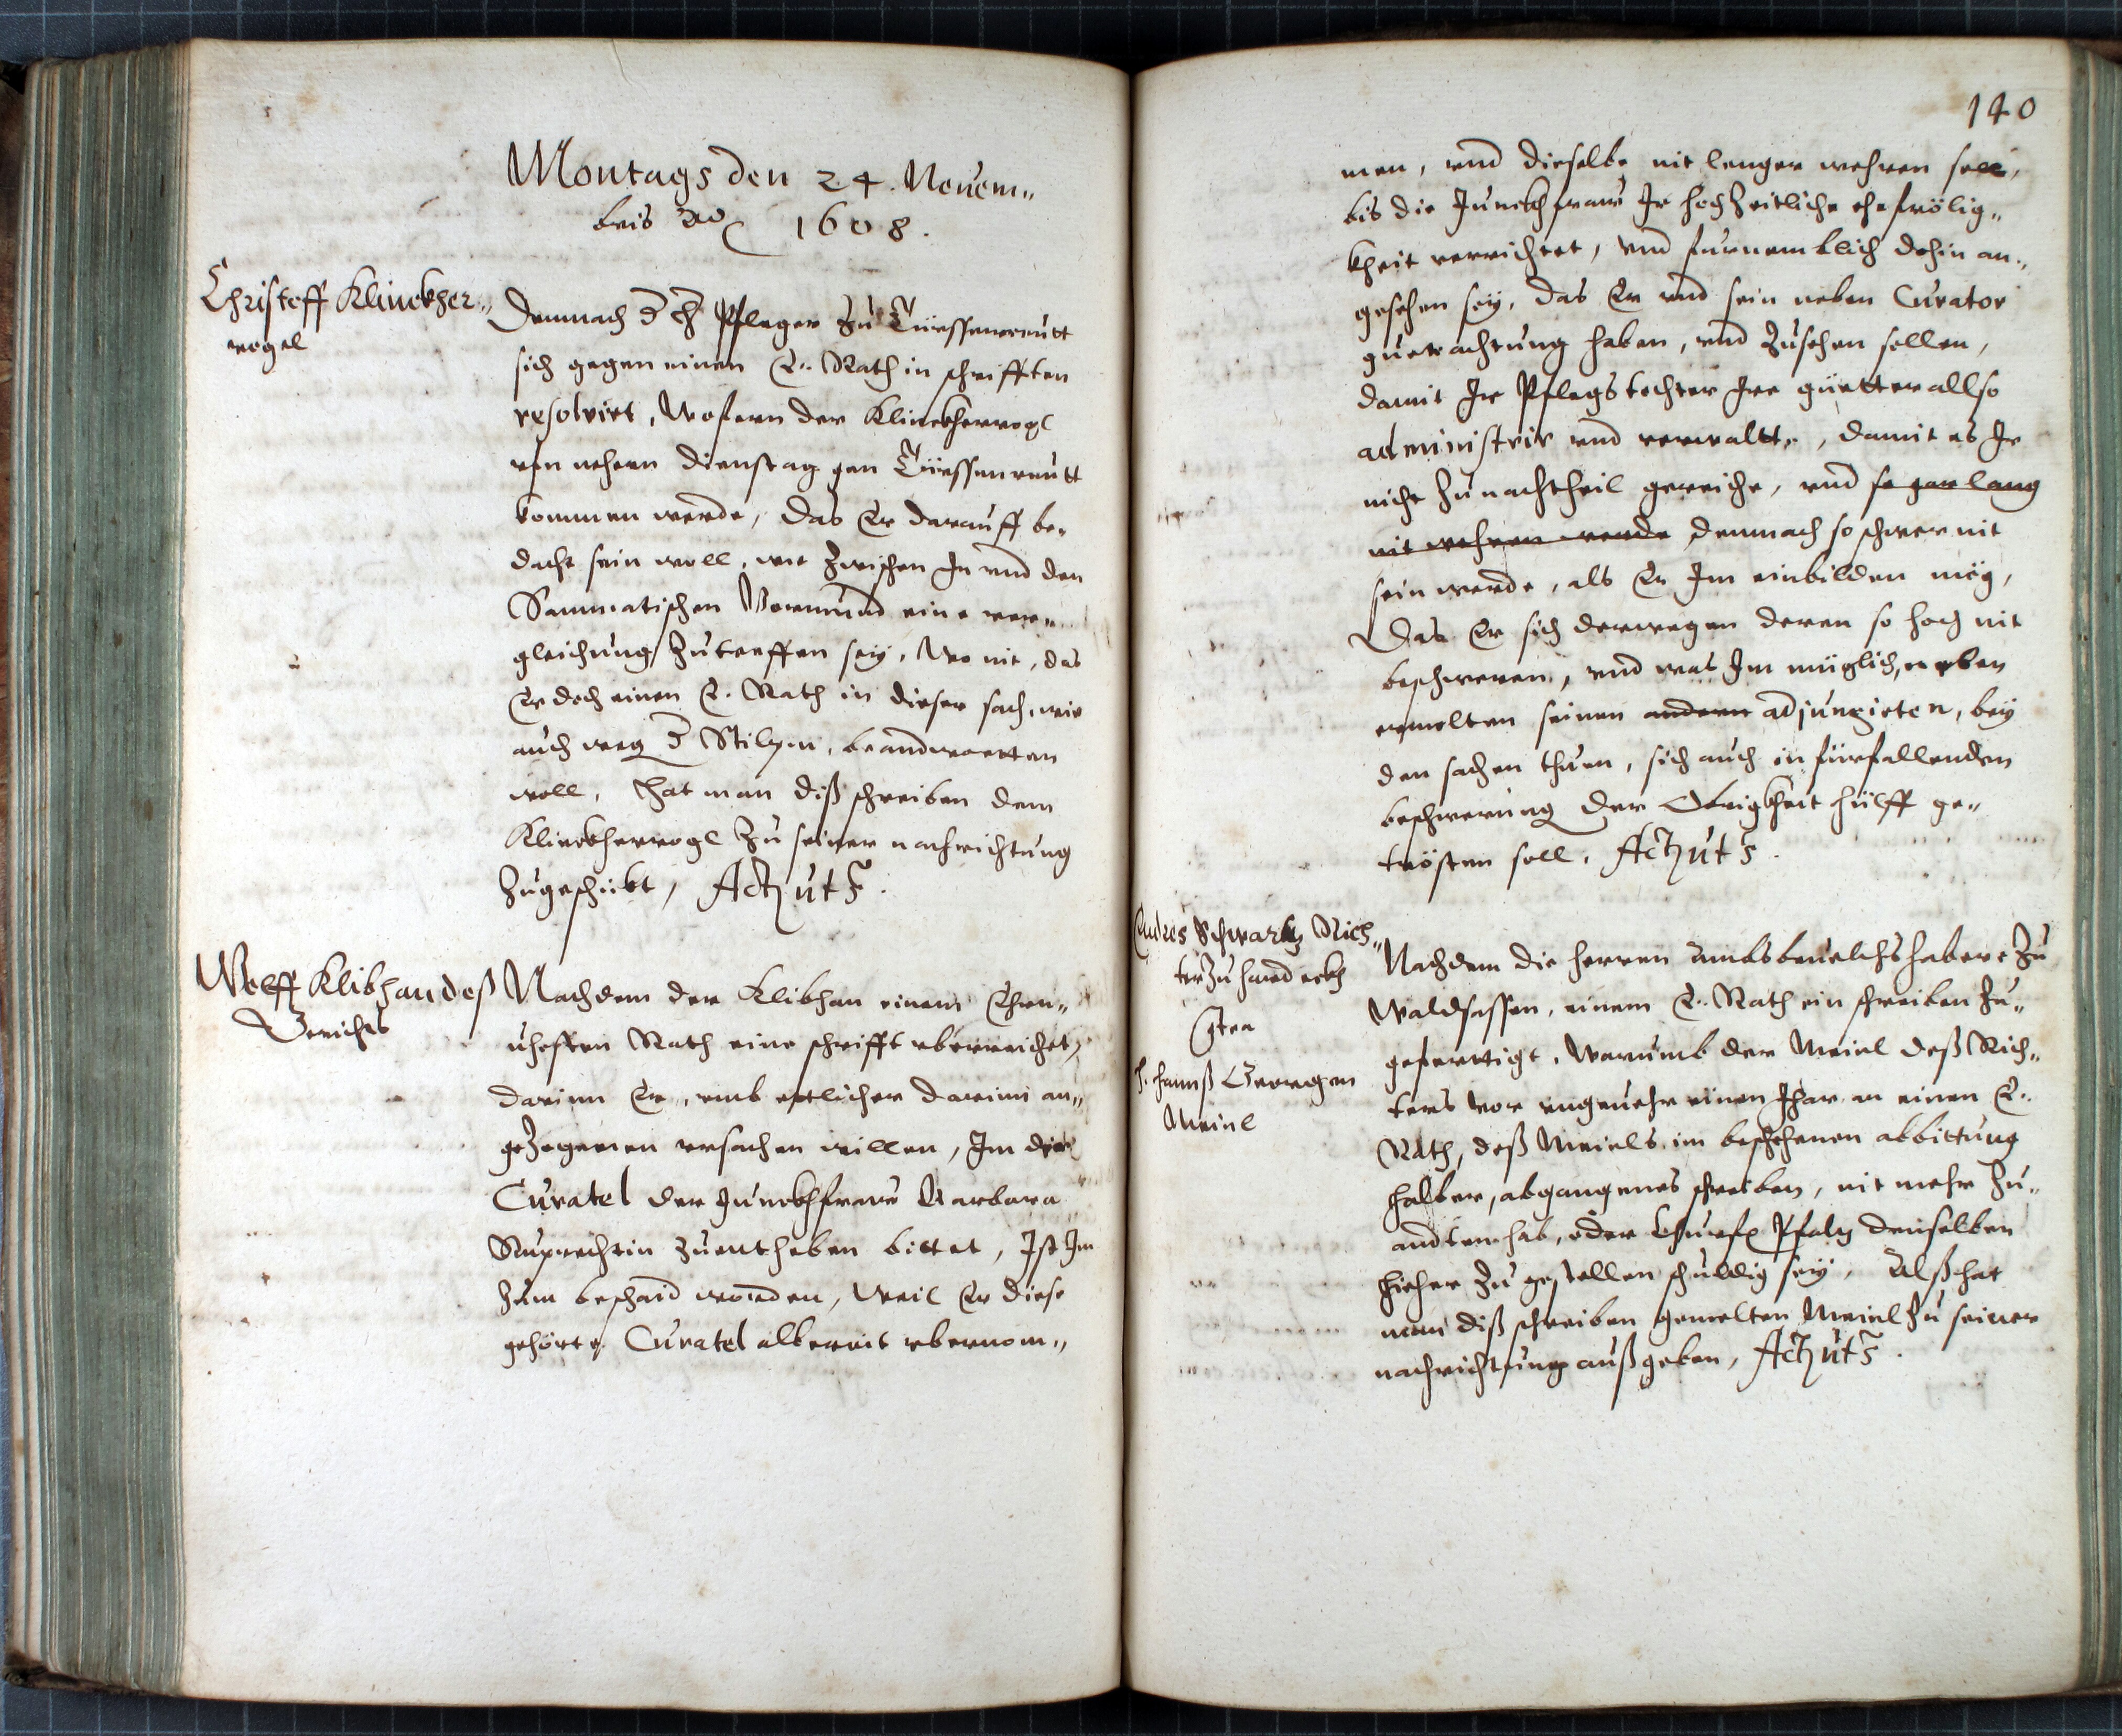 Montags den 24. Nouem„
bris Ao 1608.
Christoff Klinckher„
vogel
Demnach d h Pfleger zu Türssenreutt
sich gegen einen E. Rath in schrifften
resolvirt, Wofern der Klinckhervogl
vfn nehern dienstag gen Türssenreutt
kommen werde, das Er darauff be„
dacht sein woll, wie zwischen In vnd den
Vormund eine ver„
gleichung zutreffen sey, Wo nit, das
Er doch einen E. Rath in dieser sach, wie
auch weg d beandwortten
woll, Hat man diß schreiben dem
Klinckhervogl zu seiner nachrichtung
zugeschickt, Act ut s.
Wolff Klibhan deß
Gerichts
Nachdem der Klibhan einem Ehrn„
uhesten Rath eine schrifft vberreichet,
darinn Er, vmb etlicher darinn an„
gezogenen vrsachen willen, Im die
Curatel der Junckhfraw Barbara
Ruprechtin zuentheben bittet, Ist Im
zum beschaid worden, Weil Er diese
gehörte Curatel albereit vbernom„
140
men, vnd dieselbe nit lenger wehren soll,
bis die Junckhfraw Ir hochzeitliche ehefrölig„
kheit verrichtet, vnd furnemblich dohin an„
gesehen sey, das Er vnd sein neben Curator
guete achtung haben, vnd zusehen sollen,
damit Ir Pflegstochter Ire güetter allso
administrir vnd verwaltte, damit es Ir
nicht zu nachtheil gereiche, vnd so gar lang
nit wehren werde demnach so schwer nit
sein werde, als Er Im einbilden mög,
Das Er sich derwegen deren so hoch nit
beschweren, vnd was Im müglich, neben
ermelten seinen andern adjungirten, bey
den sachen thuen, sich auch in fürfallenden
beschwerung der Obrigkheit hülff ge„
trösten soll, Act ut s.
Andres Schwartz Rich„
ter zu Hardeckh
Ctra
H. Hannß Georgen
Meinl
Nachdem die herren Ambsbeuelchshabere zu
Waldsassen, einem E. Rath ein schreiben zu„
gefertigt, Warumb der Meinl deß Rich„
ters vor vngeuehr einen Jhar an einen E.
Rath, deß Meinels im beschehenen abbittung
halber, abgangenes schreiben, nit mehr zu„
andten hab, oder Churf Pfaltz denselben
hieher zu gestellen schuldig sey, Alß hat
man diß schreiben gemelten Meinl zu seiner
nachrichtung außgeben, Act ut s.